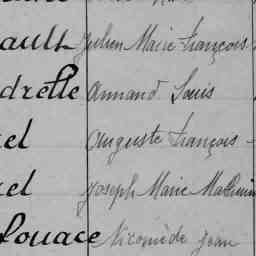 ault Julien Marie François
drelle Armand Louis
el Auguste François
el Joseph Marie Mathurin
louace Nicomède Jean